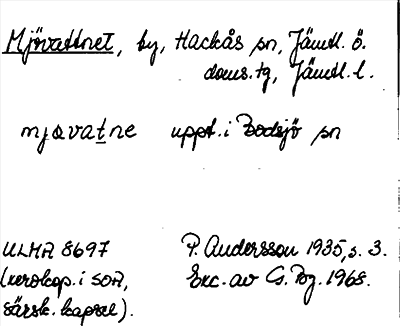 Mjövattnet, by, Hackås sn, Jämtl. ö.
doms.tg, Jämtl. l.
mjøvatne uppt. i Bodsjö sn
ULMA 8697 P. Andersson 1935, s. 3.
(xerokop. i SOA, Exc. av G. Pg. 1968.
särsk. kapsel).